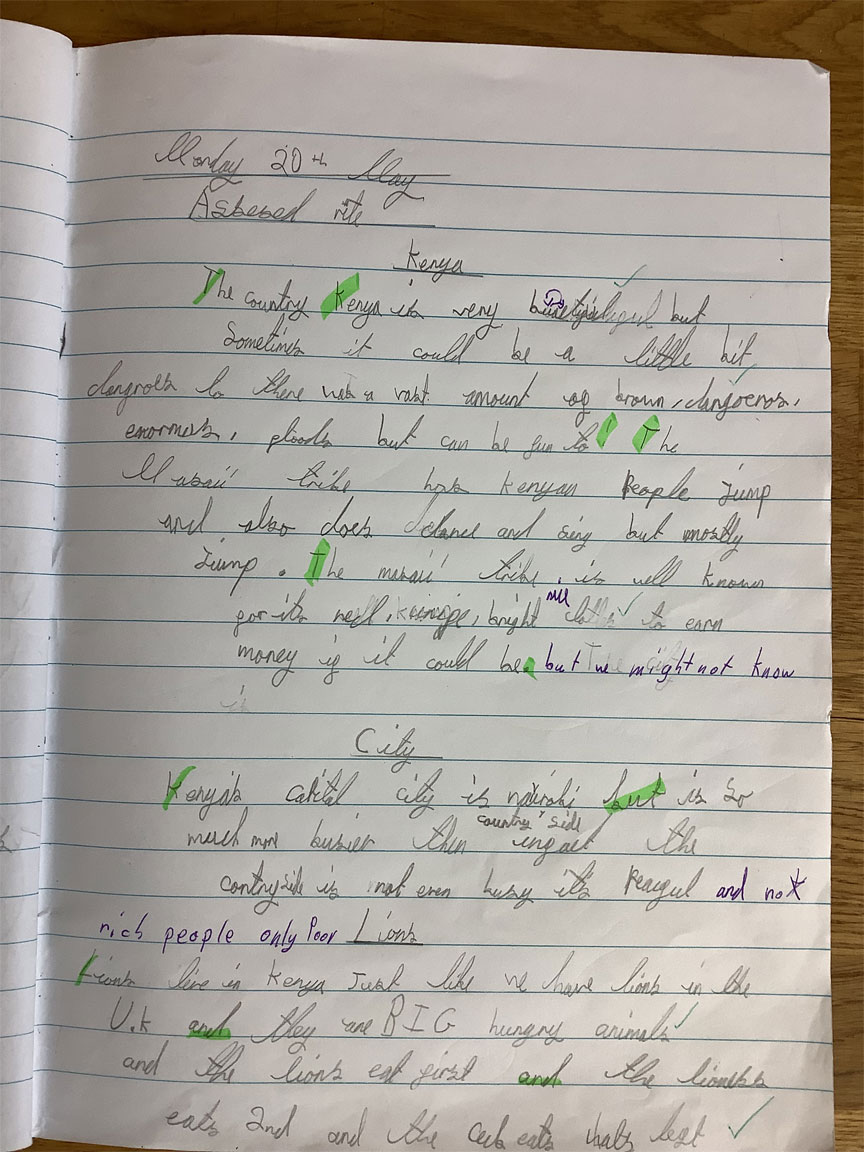 Monday 20th May
Assesed rite
Kenya
The country Kenya is very but
Sometimes it could be a little bit
dangroes so there was a vast amount of brown, dangoeros,
enormers, floods but can be fun to! The
Masaii tribe has Kenyan People Jump
and also does dance and sing but mostly
Jump. The masaii tribe, is well known
for its neck, bright cloths to earn
money if it could be. but we might not know
City
Kenya's capital city is nairobi but is So
much more busier then country side infact the
contryside is not even busy it's Peaceful and not
rich people only Poor
Lions
Lions live in Kenya Just like we have lions in the
U.k and they are BIG hungry animals
and the lions eat first and the lioness
eats 2nd and the cub eats whats left